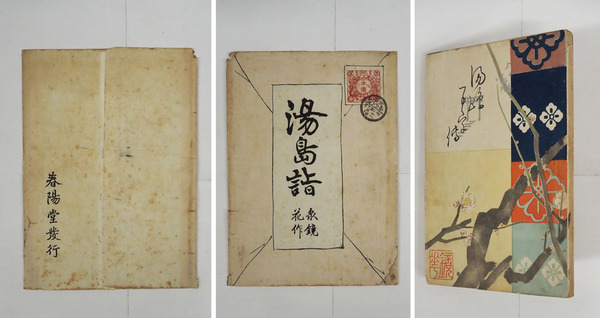 春陽堂發行
湯島詣
泉鏡
花作
湯島